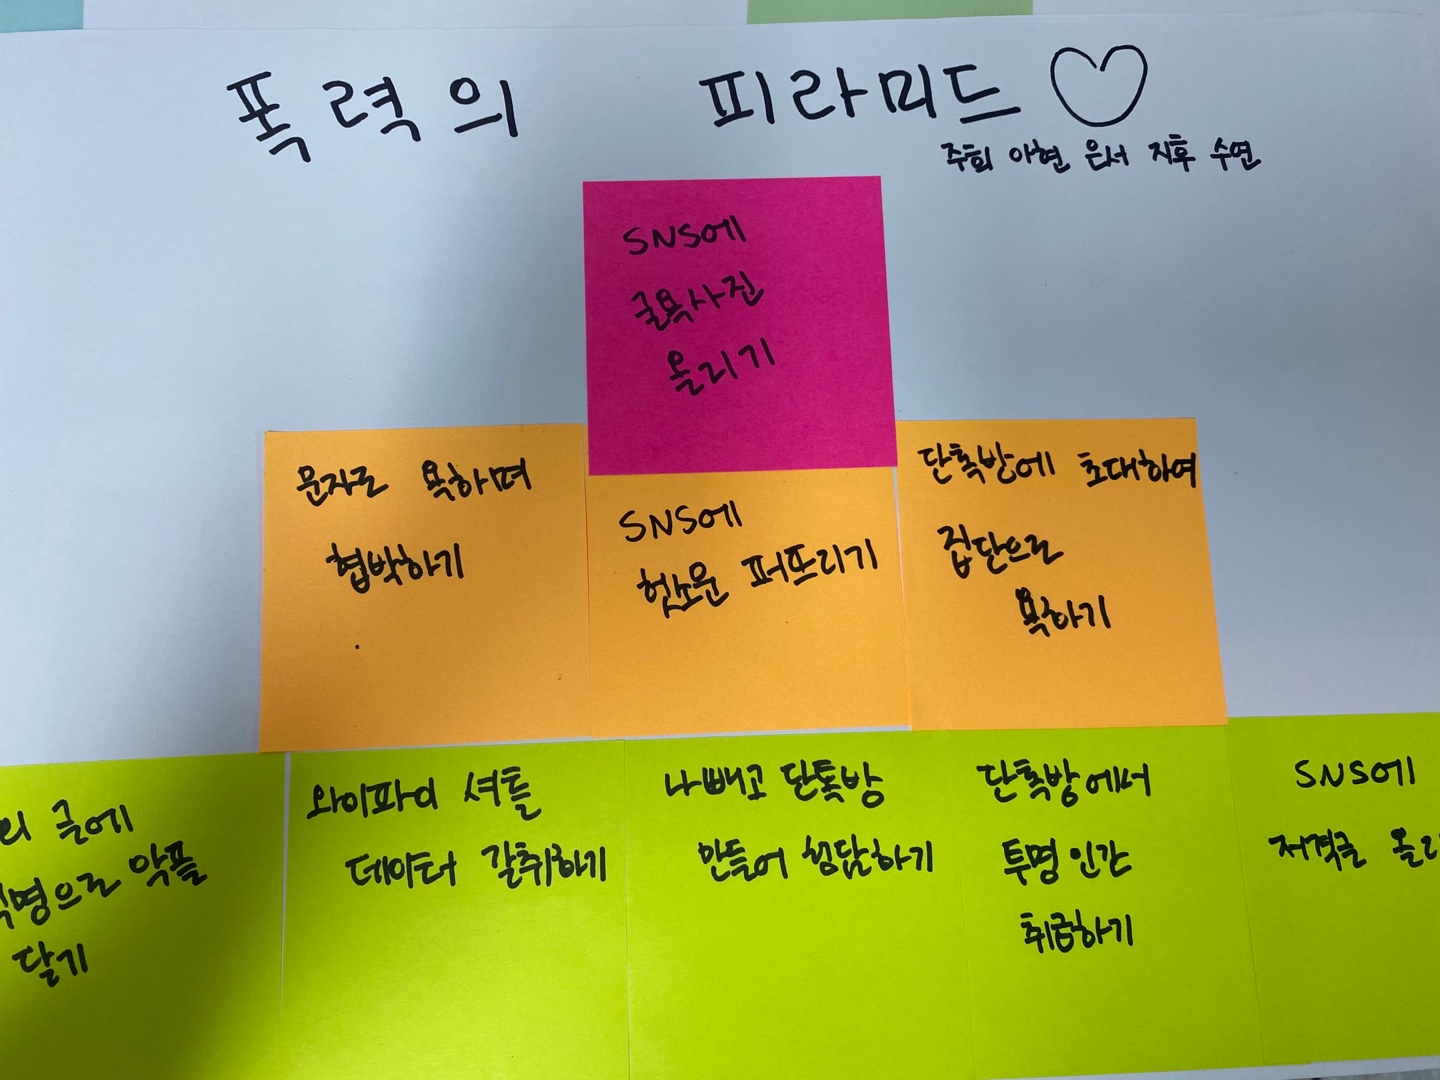 폭력의 피라미드
주희 아현 은서 지후 수연
SNS에
굴욕사진
올리기
문자로 욕하며
협박하기
SNS에
헛소문 퍼뜨리기
단톡방에 초대하여
집단으로
욕하기
글에
명으로 악플
달기
와이파이 셔틀
데이터 갈취하기
나빼고 단톡방
만들어 험담하기
단톡방에서
투명인간
취급하기
SNS에
저격글 올리